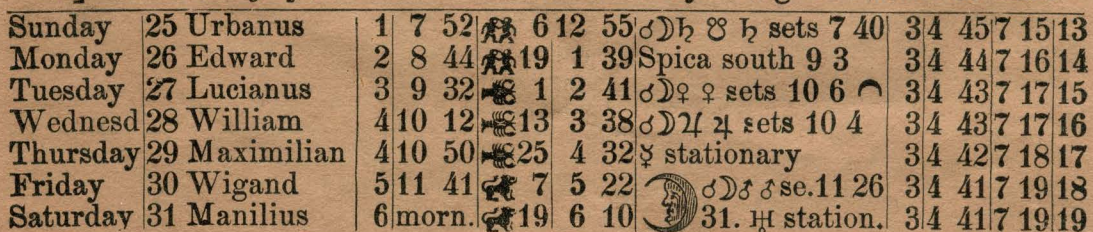 Sunday 25 Urbanus 1 7 52 6 12 55 ☌☽♄ ☋ ♄ sets 7 40 3 4 45 7 15 13
Monday 26 Edward 2 8 44 19 1 39 Spica south 9 3 3 4 44 7 16 14
Tuesday 27 Lucianus 3 9 32 1 2 41 ☌☽♀ ♀ sets 10 6 3 4 43 7 17 15
Wednesd 28 William 4 10 12 13 3 38 ☌☽♃ ♃ sets 10 4 3 4 43 7 17 16
Thursday 29 Maximilian 4 10 50 25 4 32 ☿ stationary 3 4 42 7 18 17
Friday 30 Wigand 5 11 41 7 5 22 ☌☽♂ ♂ se. 11 26 3 4 41 7 19 18
Saturday 31 Manilius 6 morn. 19 6 10 31. ♅ station. 3 4 41 7 19 19